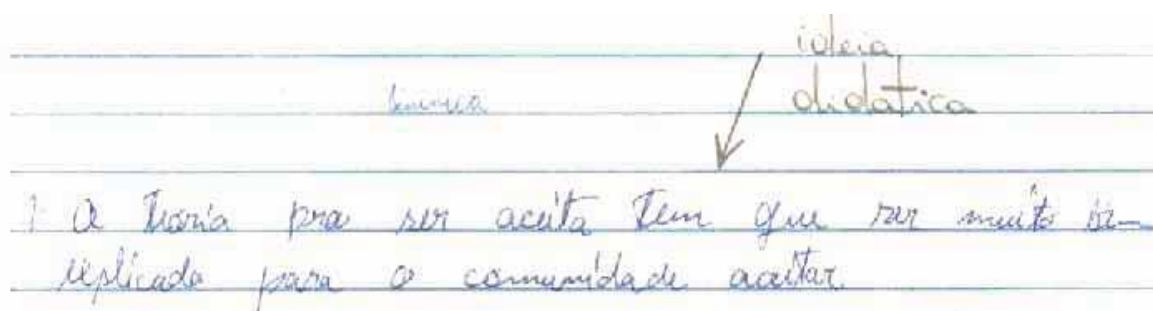 ideia
didatica
1 A teoria pra ser aceita tem que ser muito
explicada para a comunidade aceitar.